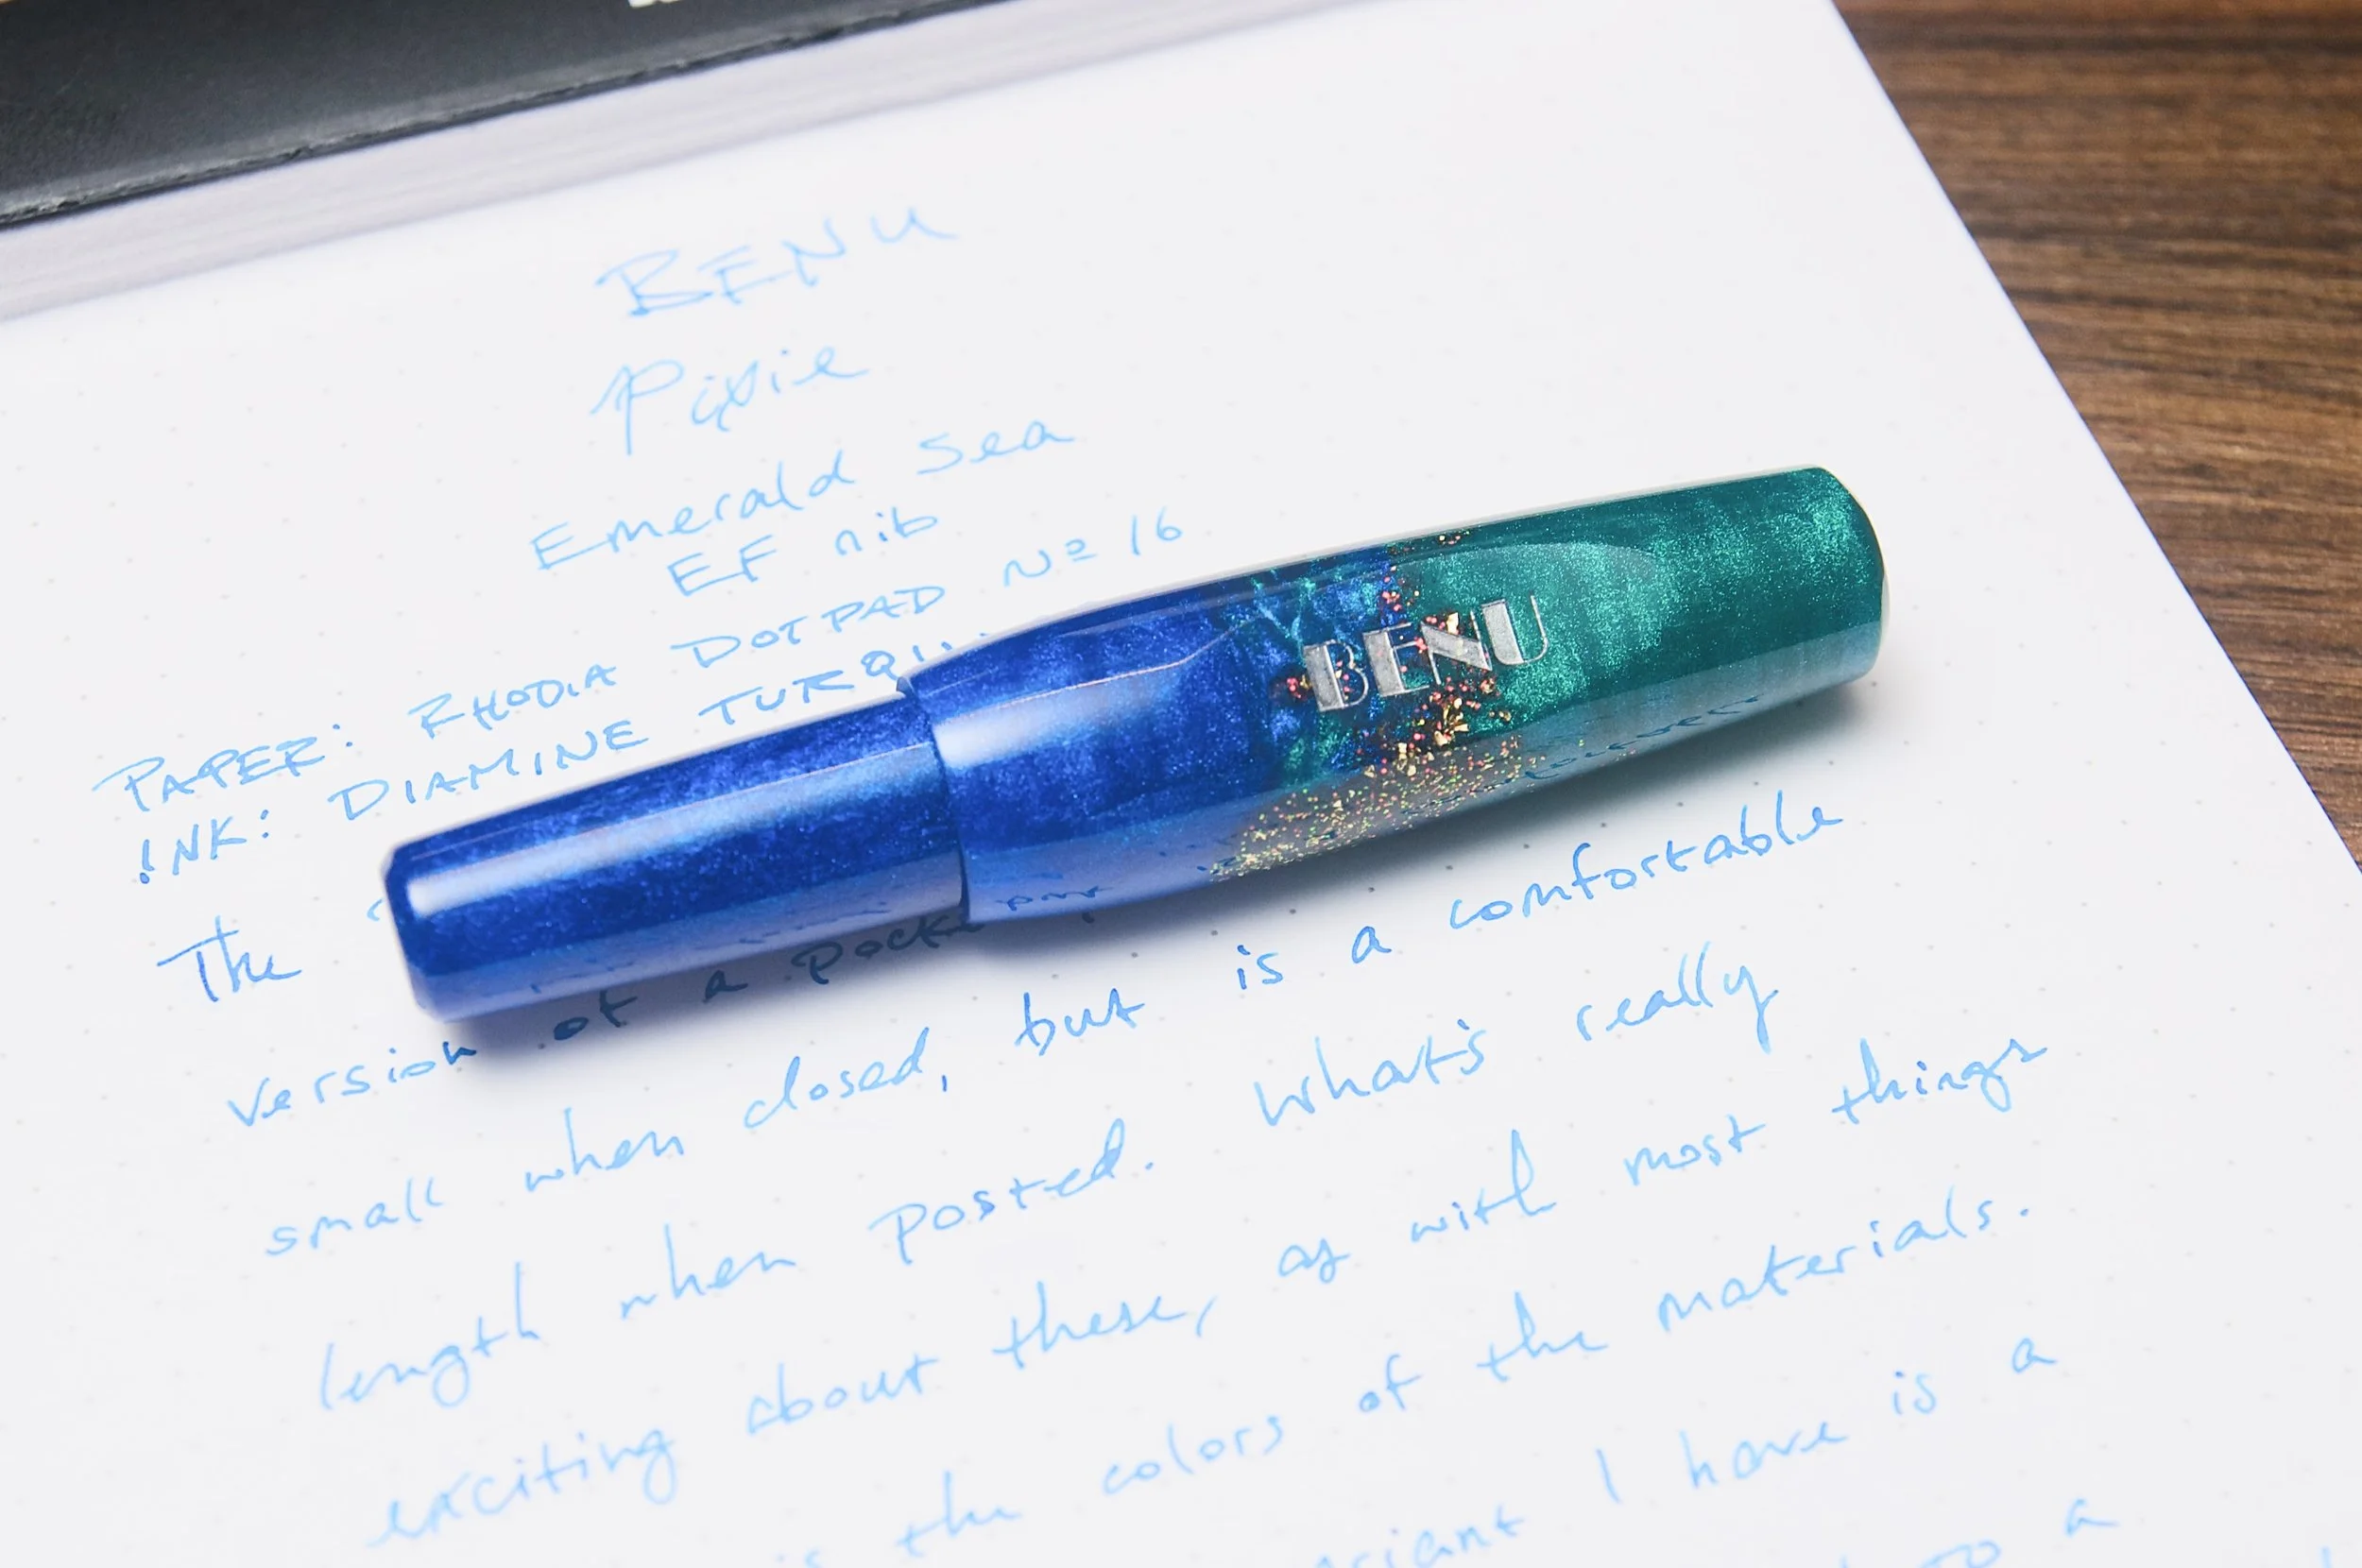 BENU
Pixie
Emerald Sea
EF nib
PAPER: RHODIA DOTPAD Nº 16
INK: DIAMINE
BENU
The
version of a
small when closed, but is a comfortable
length when posted. What's really
exciting about these, as with most things
the colors of the materials.
I have is a
a